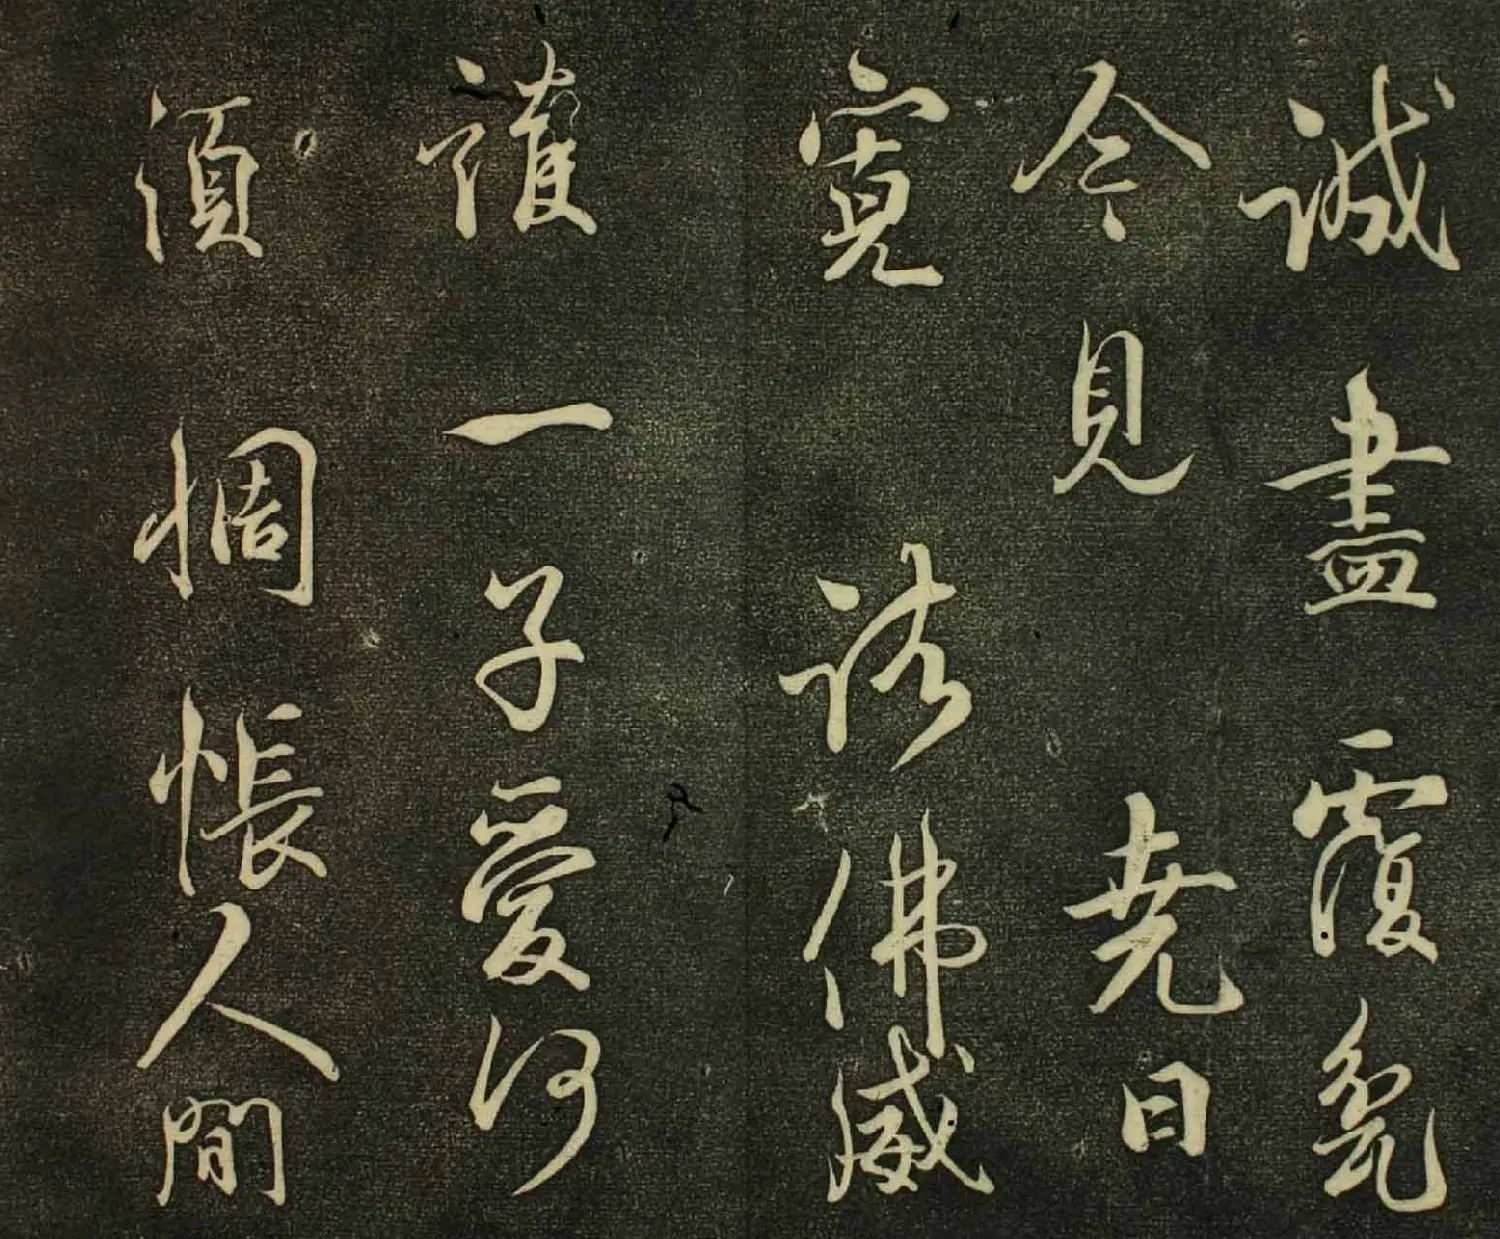 誠盡覆瓮
今見堯日
寬諸佛威
護一子愛河
須惆悵人間